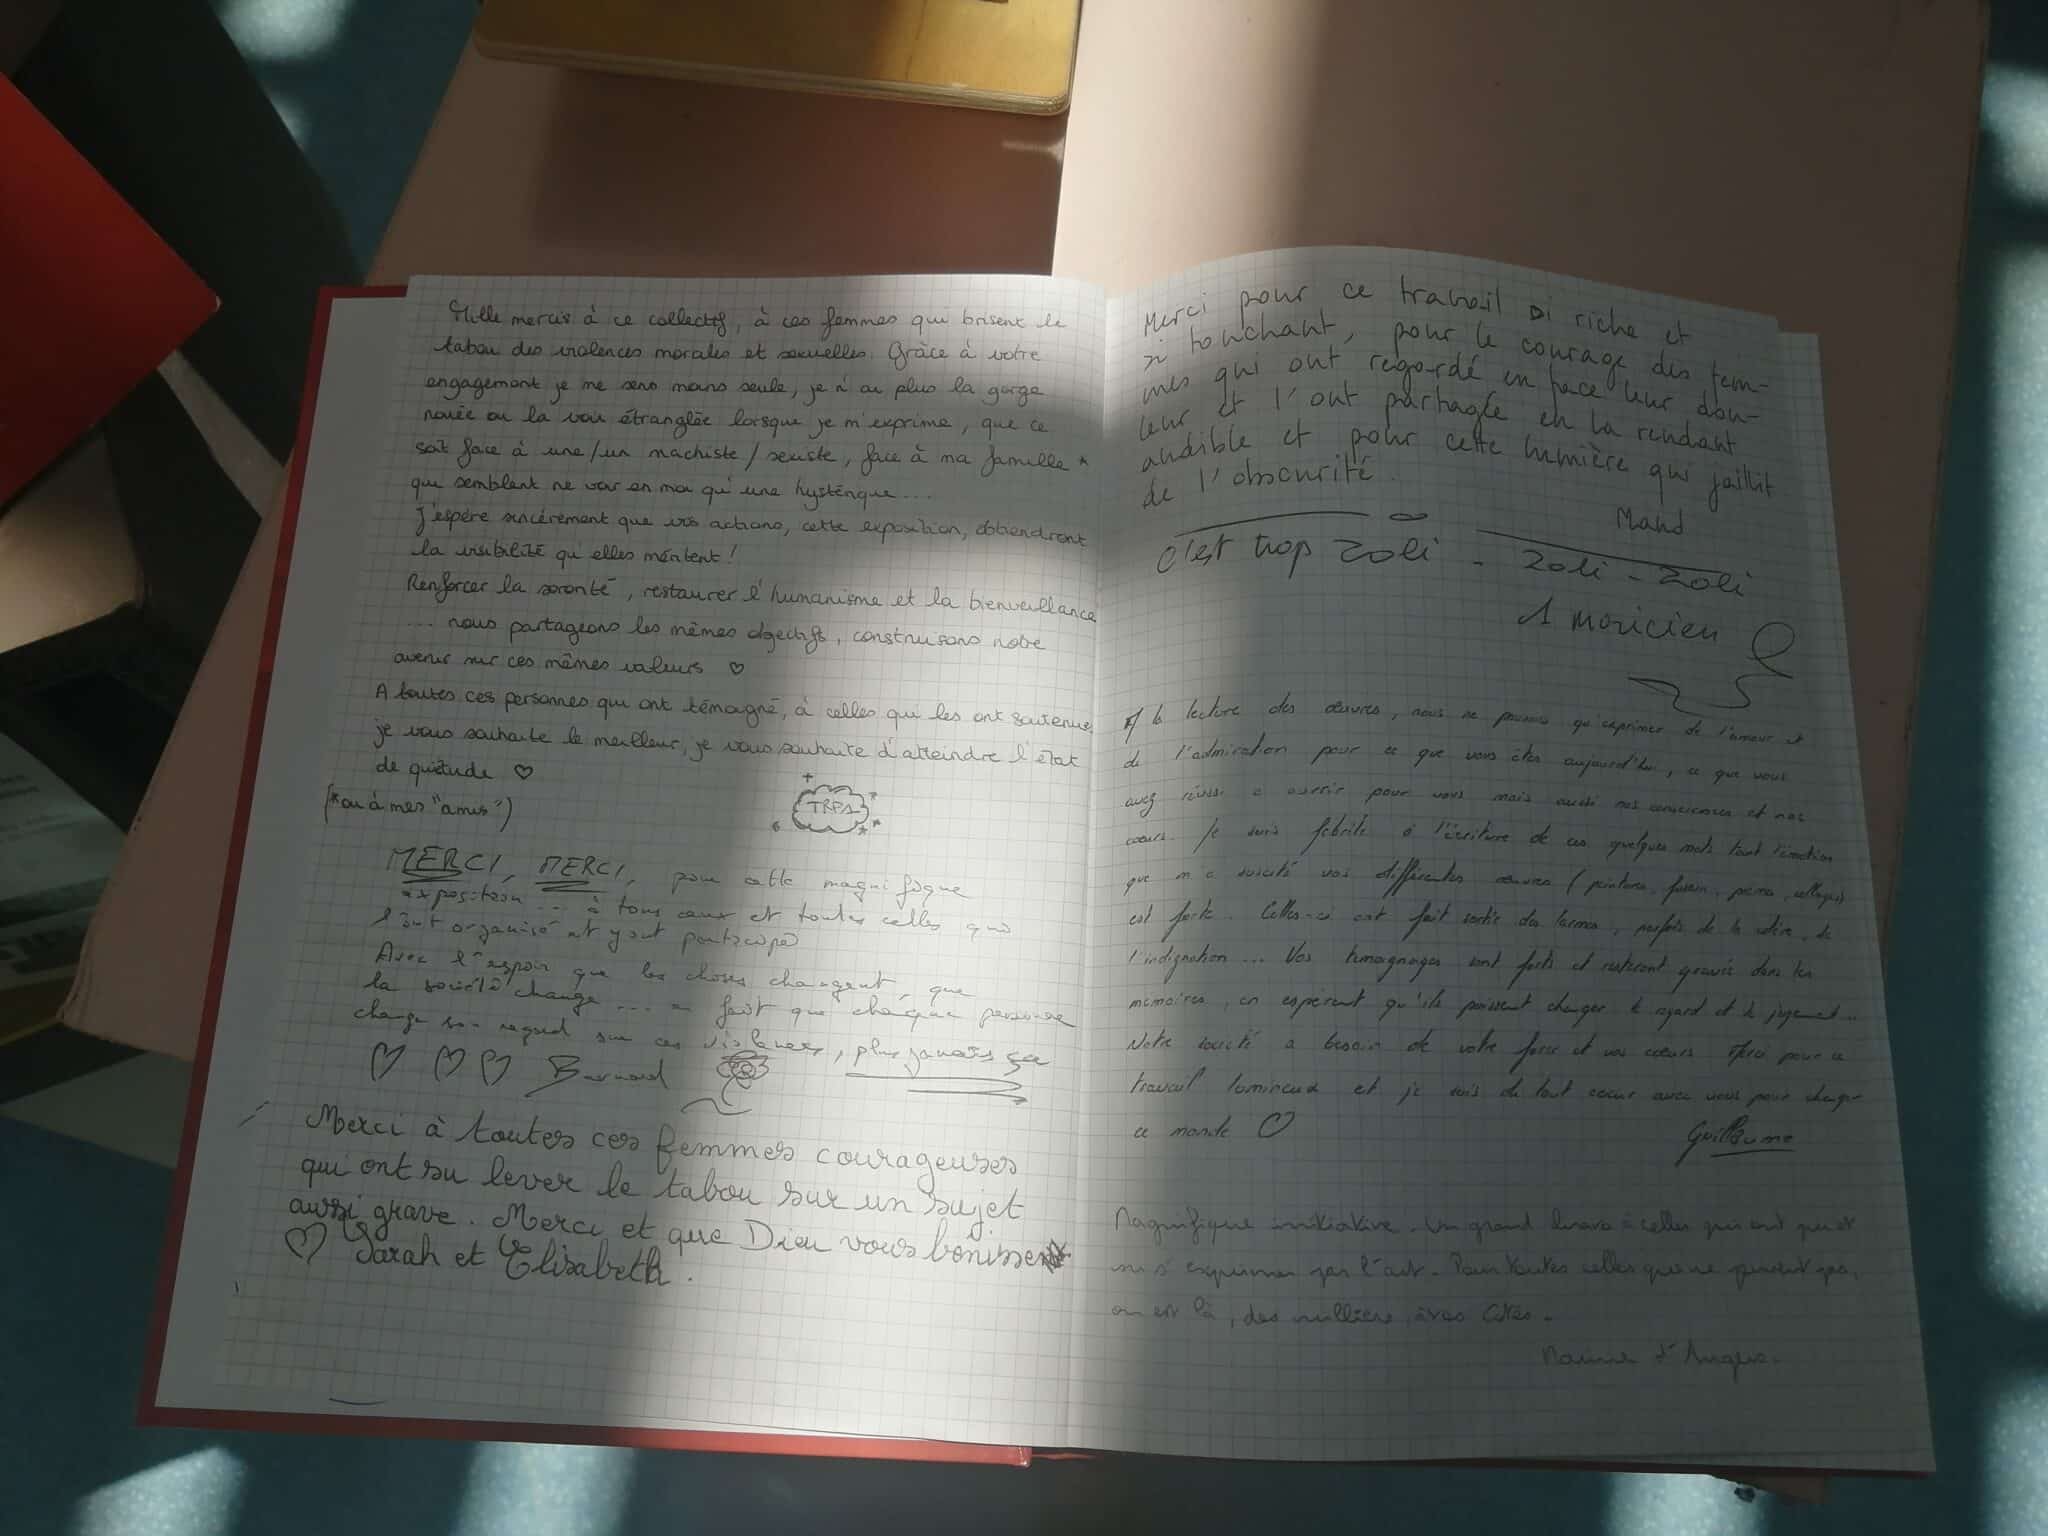 Mille mercis à ce collectif, à ces femmes qui brisent le
tabou des violences morales et sexuelles. Grâce à votre
engagement je me sens moins seule, je n'ai plus la gorge
nouée ou la voix étranglée lorsque je m'exprime, que ce
soit face à une/un machiste/sexiste, face à ma famille *
qui semblent ne voir en moi qu'une hystérique...
J'espère sincèrement que vos actions, cette exposition, obtiendront
la visibilité qu'elles méritent !
Renforcer la sororité, restaurer l'humanisme et la bienveillance
... nous partageons les mêmes objectifs, construisons notre
avenir sur ces mêmes valeurs ♡
A toutes ces personnes qui ont témoigné, à celles qui les ont soutenues
je vous souhaite le meilleur, je vous souhaite d'atteindre l'état
de quiétude ♡
(*ou à mes "amis")
MERCI, MERCI, pour cette magnifique
exposition... à tous ceux et toutes celles qui
l'ont organisé et y ont participé
Avec l'espoir que les choses changent, que
la société change... en fait que chaque personne
change son regard sur ces violences, plus jamais ça
♡ ♡ ♡ Bernard
Merci à toutes ces femmes courageuses
qui ont su lever le tabou sur un sujet
aussi grave. Merci et que Dieu vous bénisse
♡ Sarah et Elisabeth.
Merci pour ce travail si riche et
si touchant, pour le courage des fem-
mes qui ont regardé en face leur dou-
leur et l'ont partagée en la rendant
audible et pour cette lumière qui jaillit
de l'obscurité.
c'est trop zoli - zoli - zoli
1 moricien
A la lecture des œuvres, nous ne pouvons qu'exprimer de l'amour et
de l'admiration pour ce que vous êtes aujourd'hui, ce que vous
avez réussi à ouvrir pour vous mais aussi nos consciences et nos
cœurs. Je suis fébrile à l'écriture de ces quelques mots tant l'émotion
que m'a suscité vos différentes œuvres (peinture, fusain, poème, collages)
est forte. Celles-ci ont fait sortir des larmes, parfois de la colère, de
l'indignation... Vos témoignages sont forts et resteront gravés dans les
mémoires, en espérant qu'ils puissent changer le regard et le jugement...
Notre société a besoin de votre force et vos cœurs Merci pour ce
travail lumineux et je suis de tout cœur avec vous pour changer
ce monde ♡
Guillaume
Magnifique initiative. Un grand bravo à celles qui ont pu et
su s'exprimer par l'art. Pour toutes celles qui ne peuvent pas,
on est là, des milliers, à vos côtés.
d'Angers.